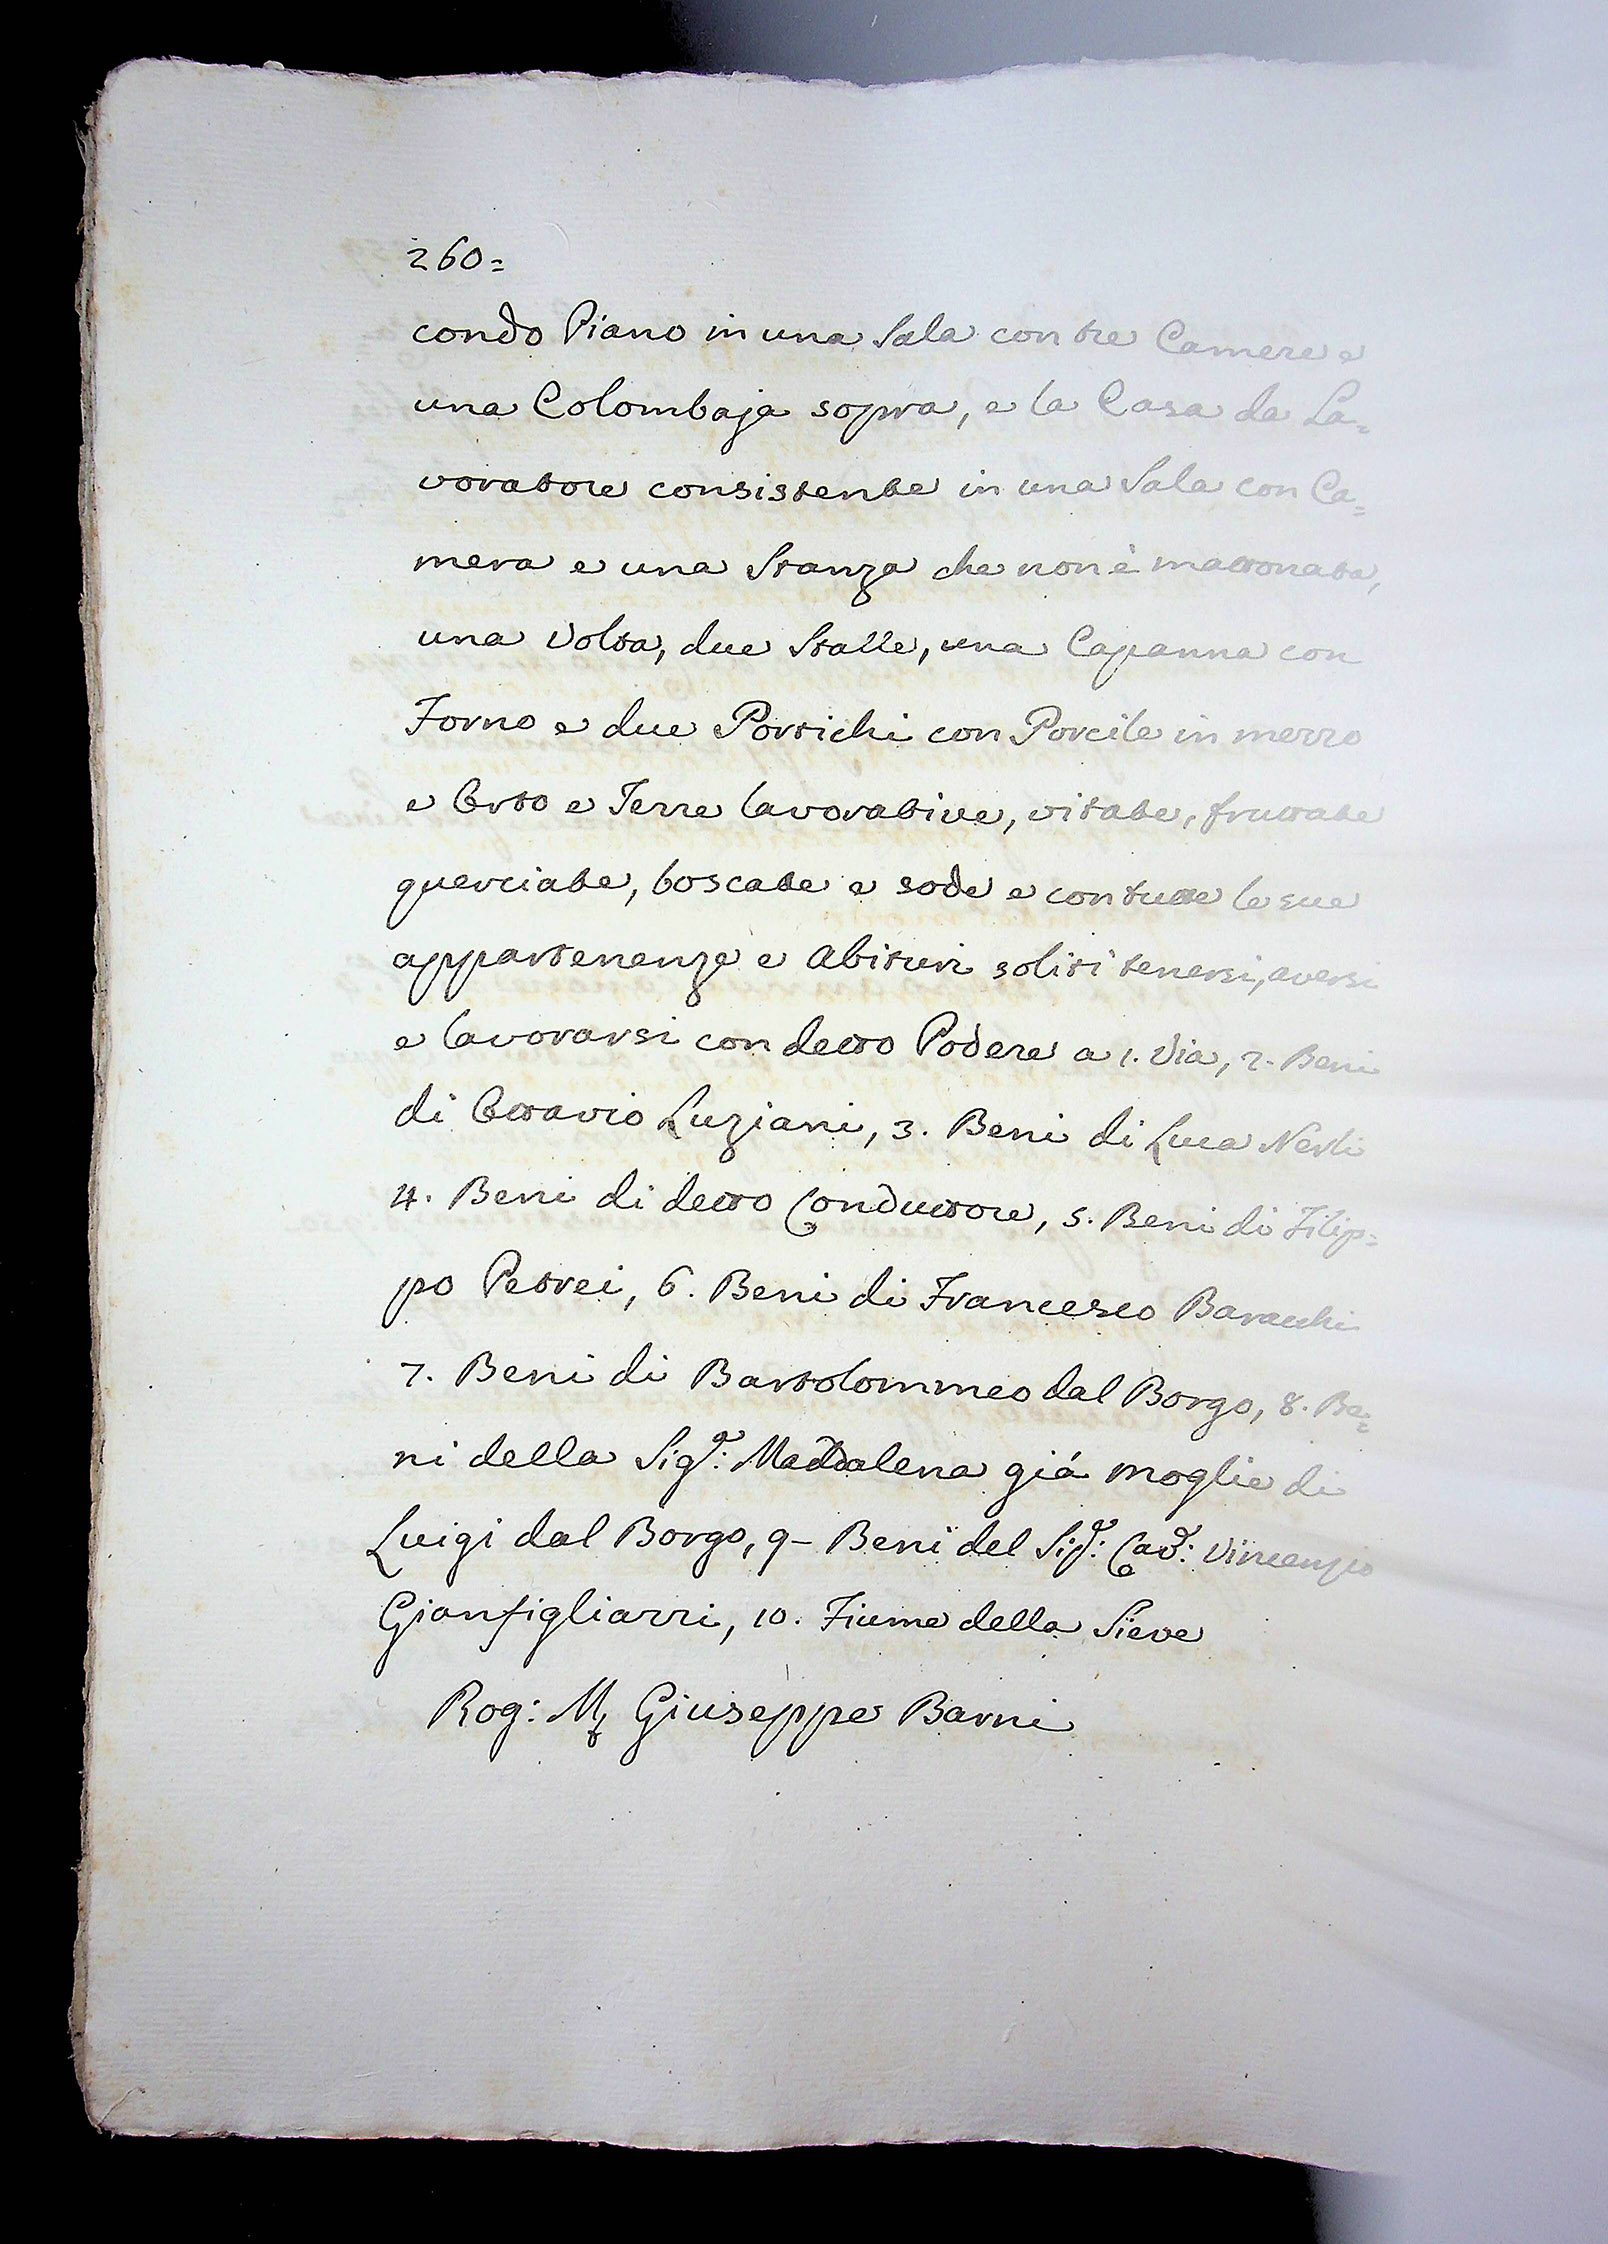 260=
condo Piano in una Sala con tre Camere e
una Colombaja sopra, e la Casa da La=
voratore consistente in una Sala con Ca=
mera e una Stanza che non è mattonata,
una Volta, due Stalle, una Capanna con
Forno e due Portichi con Porcile in mezzo
e Orto e Terre lavorative, vitate, fruttate
querciate, boscate e sode e con tutte le sue
appartenenze e Abituri soliti tenersi, aversi
e lavorarsi con detto Podere a 1. Via, 2. Beni
di Ottavio Luziani, 3. Beni di Luca Nerli
4. Beni di detto Conduttore, 5. Beni di Filip=
po Petrei, 6. Beni di Francesco Baracchi
7. Beni di Bartolommeo dal Borgo, 8. Be=
ni della Sig.ª: Maddalena giá moglie di
Luigi dal Borgo, 9- Beni del Sig.ʳ: Cav.ʳ: Vincenzio
Gianfigliazzi, 10. Fiume della Sieve
Rog: M Giuseppe Barni